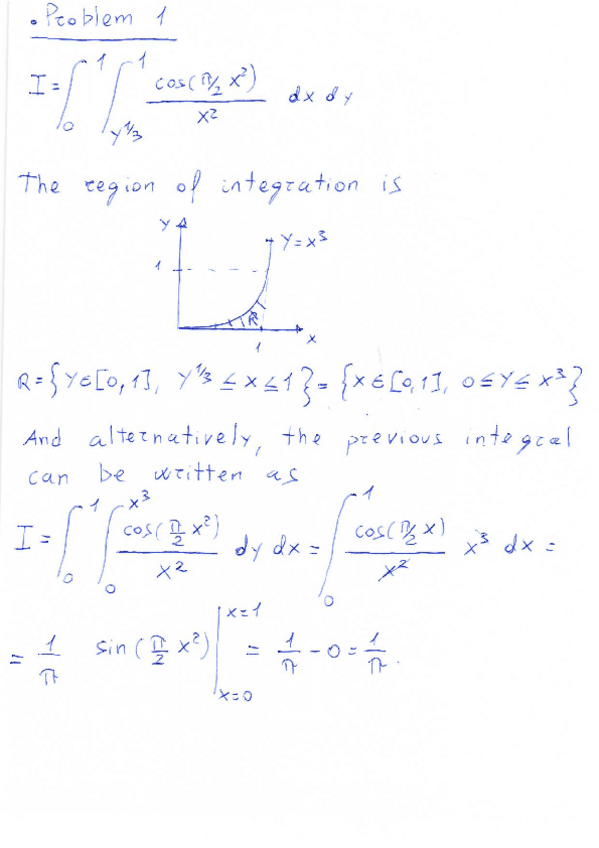 • Problem 1
I = ∫₀¹ ∫_{y^{1/3}}^1 cos(π/2 x²)/x² dx dy
The region of integration is
y
y = x³
1
R
x
1
R = {y ∈ [0,1], y^{1/3} ≤ x ≤ 1} = {x ∈ [0,1], 0 ≤ y ≤ x³}
And alternatively, the previous integral
can be written as
I = ∫₀¹ ∫₀^{x³} cos(π/2 x²)/x² dy dx = ∫₀¹ cos(π/2 x)/x² x³ dx =
= 1/π sin(π/2 x²) |_{x=0}^{x=1} = 1/π - 0 = 1/π.